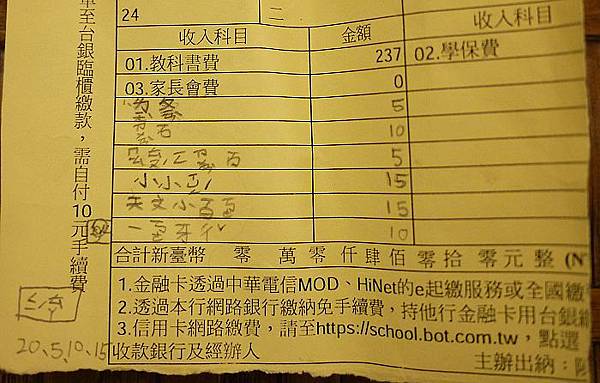 單至台銀臨櫃繳款，需自付10元手續費
24 二
收入科目 金額 收入科目
01.教科書費 237 02.學保費
03.家長會費 0
5
10
5
小小 15
小 15
一 10
合計新臺幣 零 萬 零 仟 肆 佰 零 拾 零 元 整 (N
1.金融卡透過中華電信MOD、HiNet的e起繳服務或全國繳
2.透過本行網路銀行繳納免手續費，持他行金融卡用台銀
3.信用卡網路繳費，請至https://school.bot.com.tw，點選
20.5.10.15
收款銀行及經辦人 主辦出納：